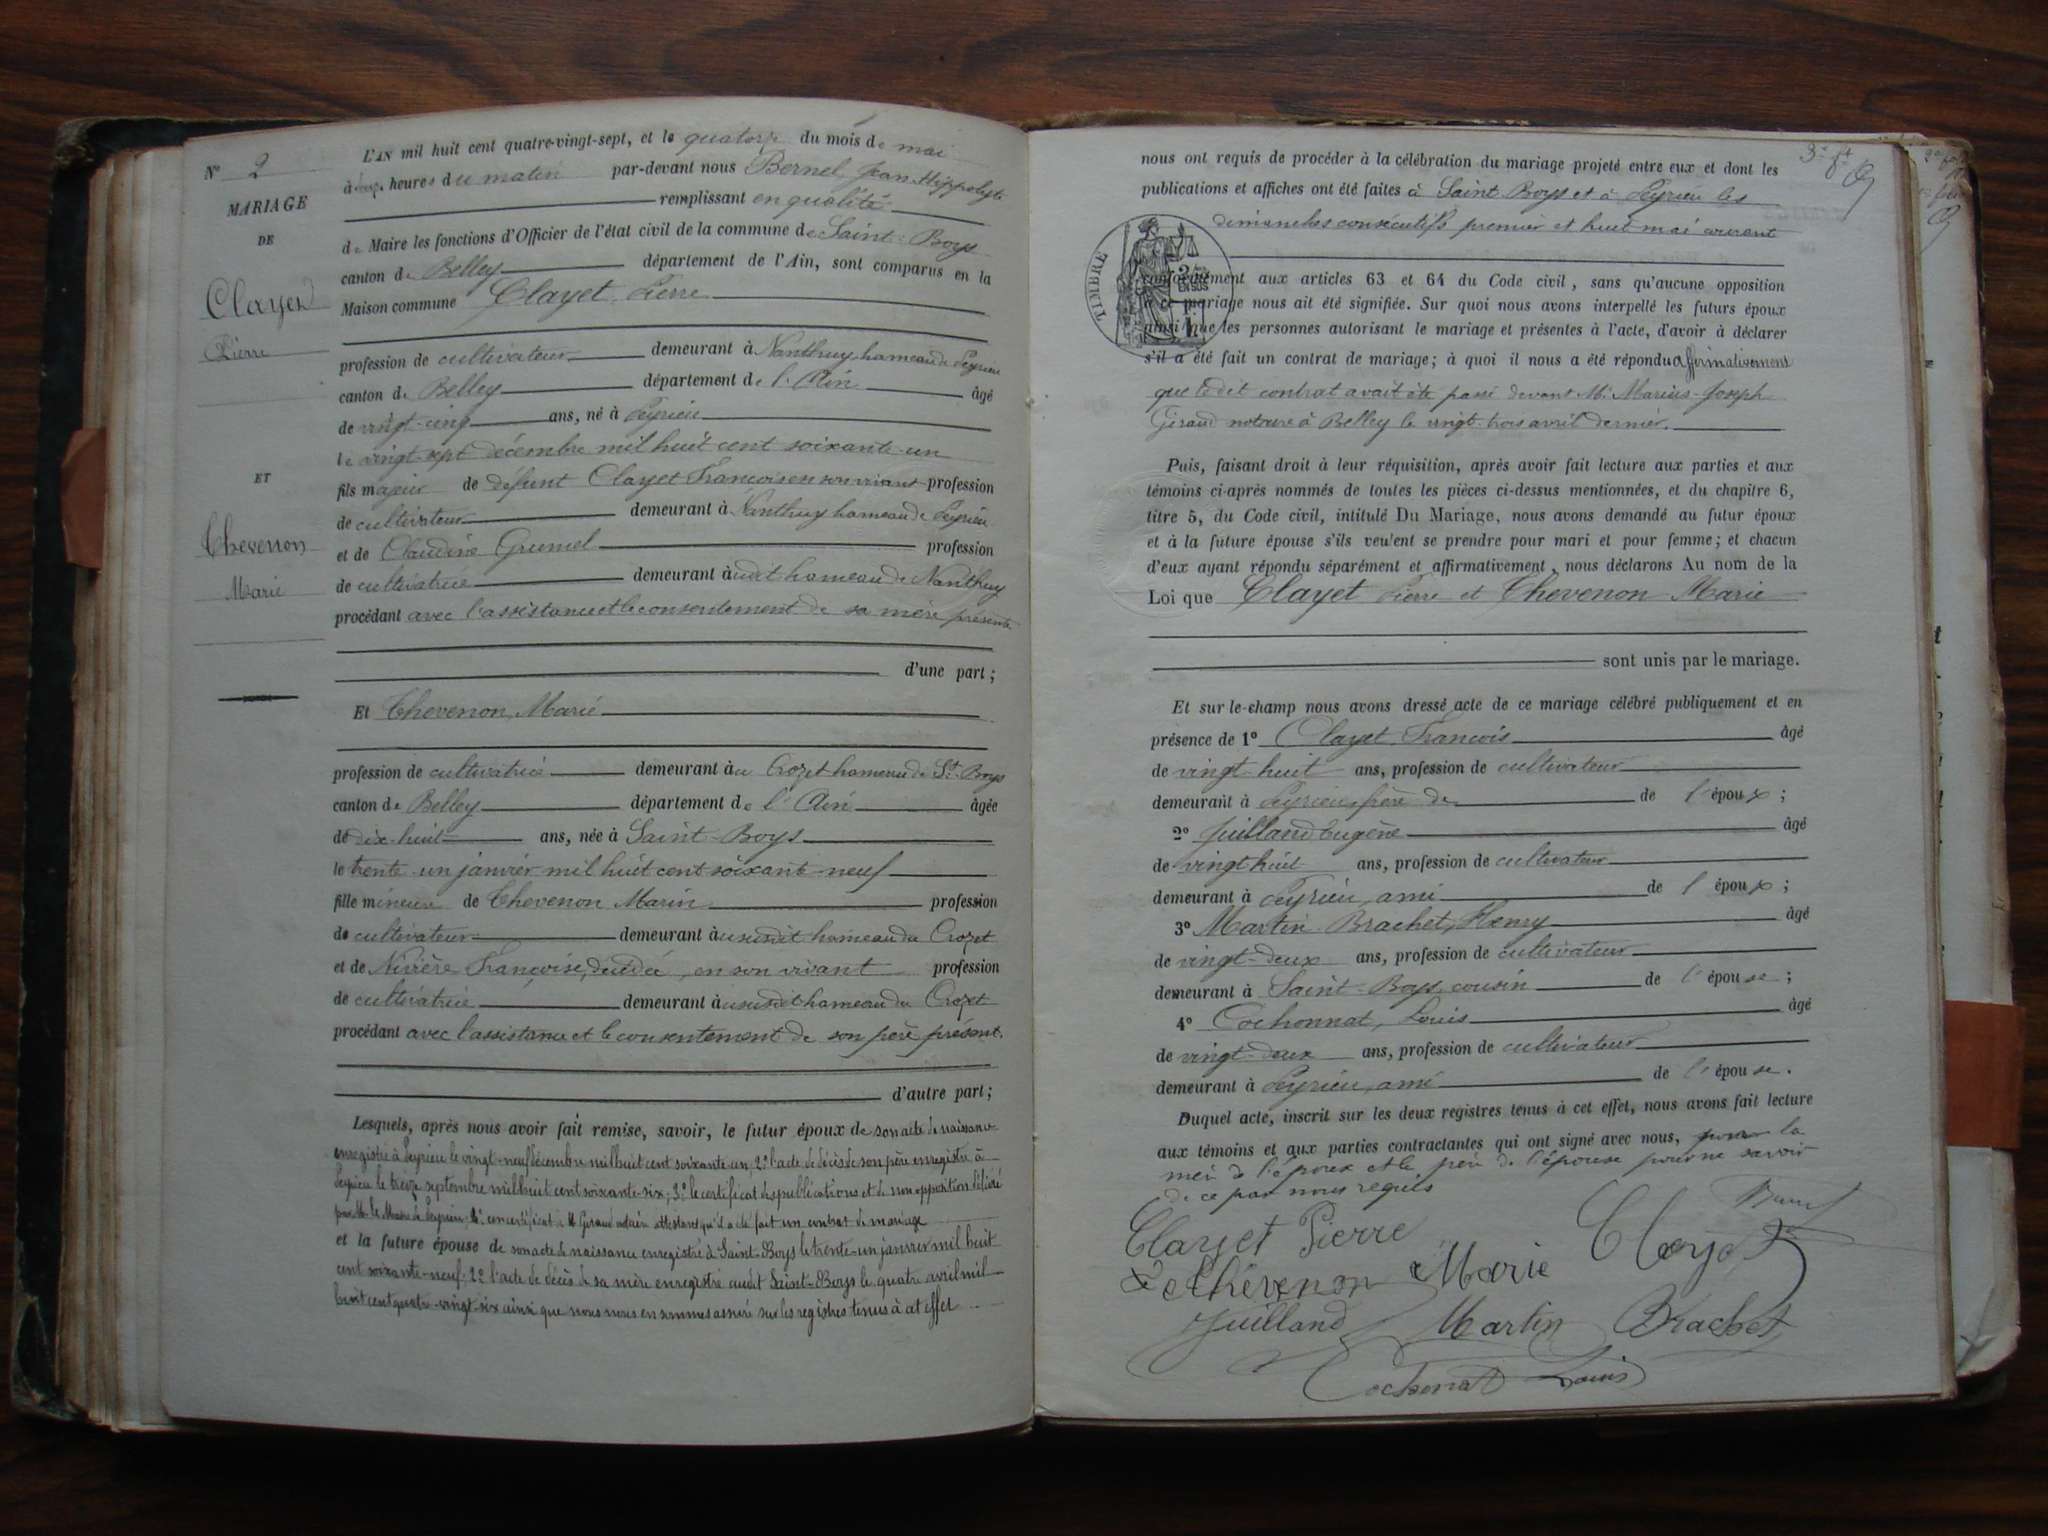 N° 2
MARIAGE
DE
Clayet
Pierre
ET
Thevenon
Marie
L'AN mil huit cent quatre-vingt-sept, et le quatorze du mois de mai
à heures du matin par-devant nous Bernel, Jean Hippolyte
remplissant en qualité
de Maire les fonctions d'Officier de l'état civil de la commune de Saint-Boys
canton de Belley département de l'Ain, sont comparus en la
Maison commune Clayet, Pierre
profession de cultivateur demeurant à Nanthuy hameau de Peyrieu
canton de Belley département de l'Ain âgé
de vingt-cinq ans, né à Peyrieu
le vingt-sept décembre mil huit cent soixante-un
fils majeur de défunt Clayet Francois en son vivant profession
de cultivateur demeurant à Nanthuy hameau de Peyrieu
et de Claudine Grumel profession
de cultivatrice demeurant audit hameau de Nanthuy
procédant avec l'assistance et le consentement de sa mère présente
d'une part ;
Et Thevenon, Marie
profession de cultivatrice demeurant au Crozet hameau de St Boys
canton de Belley département de l'Ain âgée
de dix-huit ans, née à Saint-Boys
le trente-un janvier mil huit cent soixante-neuf
fille mineure de Thevenon Marin profession
de cultivateur demeurant au susdit hameau du Crozet
et de Nivière Françoise, décédée, en son vivant profession
de cultivatrice demeurant au susdit hameau du Crozet
procédant avec l'assistance et le consentement de son père présent.
d'autre part ;
Lesquels, après nous avoir fait remise, savoir, le futur époux de son acte de naissance
enregistré à Peyrieu le vingt-neuf décembre mil huit cent soixante-un, 2° l'acte de décès de son père enregistré à
Peyrieu le treize septembre mil huit cent soixante-six ; 3° le certificat des publications et de non opposition délivré
par M. le Maire de Peyrieu 4° certificat M Geraud notaire attestant qu'il a été fait un contrat de mariage
et la future épouse de son acte de naissance enregistré à Saint-Boys le trente-un janvier mil huit
cent soixante-neuf ; 2° l'acte de décès de sa mère enregistré audit Saint-Boys le quatre avril mil
huit cent quatre-vingt-six ainsi que nous nous en sommes assuré sur les registres tenus à cet effet
nous ont requis de procéder à la célébration du mariage projeté entre eux et dont les
publications et affiches ont été faites à Saint-Boys et à Peyrieu les
dimanches consécutifs premier et huit mai courant
TIMBRE
conformément aux articles 63 et 64 du Code civil, sans qu'aucune opposition
à ce mariage nous ait été signifiée. Sur quoi nous avons interpellé les futurs époux
ainsi que les personnes autorisant le mariage et présentes à l'acte, d'avoir à déclarer
s'il a été fait un contrat de mariage ; à quoi il nous a été répondu affirmativement
que ledit contrat avait été passé devant Me Marius-Joseph
Geraud notaire à Belley le vingt-trois avril dernier.
Puis, faisant droit à leur réquisition, après avoir fait lecture aux parties et aux
témoins ci-après nommés de toutes les pièces ci-dessus mentionnées, et du chapitre 6,
titre 5, du Code civil, intitulé Du Mariage, nous avons demandé au futur époux
et à la future épouse s'ils veulent se prendre pour mari et pour femme ; et chacun
d'eux ayant répondu séparément et affirmativement, nous déclarons Au nom de la
Loi que Clayet Pierre et Thevenon Marie
sont unis par le mariage.
Et sur-le-champ nous avons dressé acte de ce mariage célébré publiquement et en
présence de 1° Clayet, Francois âgé
de vingt-huit ans, profession de cultivateur
demeurant à Peyrieu, frère de de l'époux ;
2° Juilland Eugène âgé
de vingt huit ans, profession de cultivateur
demeurant à Peyrieu, ami de l'époux ;
3° Martin-Brachet, Henry âgé
de vingt-deux ans, profession de cultivateur
demeurant à Saint-Boys, cousin de l'épouse ;
4° Cochonnat, Louis âgé
de vingt-deux ans, profession de cultivateur
demeurant à Peyrieu, ami de l'épouse.
Duquel acte, inscrit sur les deux registres tenus à cet effet, nous avons fait lecture
aux témoins et aux parties contractantes qui ont signé avec nous, la
mère de l'époux et le père de l'épouse pour ne savoir
de ce par nous requis
Clayet Pierre Clayet
Thévenon Marie
Juilland Martin Brachet
Cochonat Louis